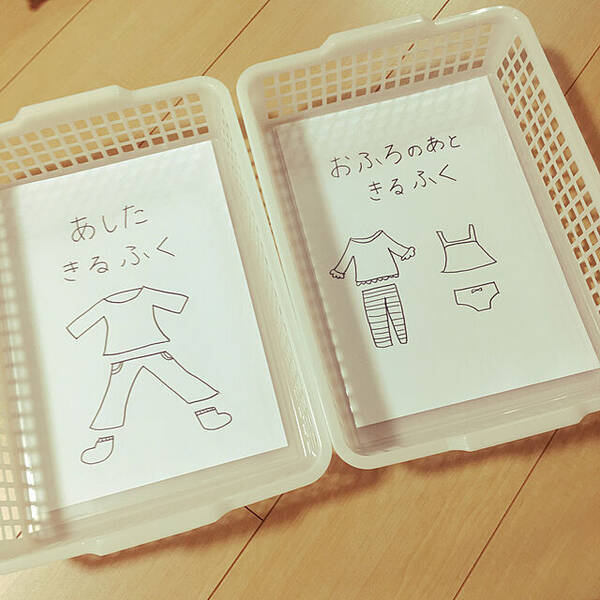 あした
きるふく
おふろのあと
きるふく